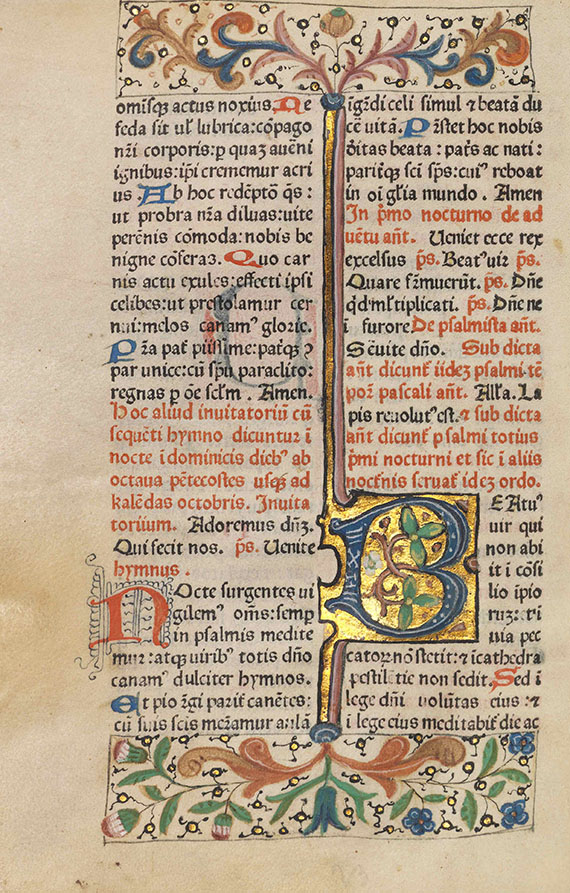 omisq̃ actus noxius. Ne
feda sit ul' lubrica: cõpago
nr̃i corporis: ꝑ quaʒ aueni
ignibus: ip̃i crememur acri
us. Ab hoc redẽptõ q̃s:
ut probra nr̃a diluas: uite
perẽnis cõmoda: nobis be
nigne cõferas. Quo car
nis actu exules: effecti ipsi
celibes: ut prestolamur cer
nui: melos canamꝰ glorie.
Pr̃a pat̃ pijssime: pat̃qʒ
par unice: cũ sp̃u paraclito:
regnas ꝑ õe sclm̃. Amen.
Hoc aliud inuitatoriũ cũ
sequẽti hymno dicuntur i
nocte i dominicis diebꝰ ab
octaua pẽtecostes usqʒ ad
kalẽdas octobris. Inuita
toriuum. Adoremus dñʒ.
Qui fecit nos. p̃s. Uenite
hymnus.
Nocte surgentes ui
gilemꝰ om̃s: semp̃
in psalmis medite
mur: atqʒ uiribꝰ totis dño
canamꝰ dulciter hymnos.
Et pio r̃gi parit̃ canẽtes:
cũ suis scis mer̃amur aulã
igr̃di celi simul ⁊ beatã du
cẽ uitã. Pr̃stet hoc nobis
ditas beata: pat̃s ac nati:
parit̃qʒ sci sp̃s: cuiꝰ reboat
in oi gl'ia mundo. Amen
In p̃mo nocturno de ad
uẽtu añt. Ueniet ecce rex
excelsus p̃s. Beatꝰ uir p̃s.
Quare fr̃muerũt. p̃s. Dñe
qd̃ ml'tiplicati. p̃s. Dñe ne
i furore De psalmista añt.
Seruite dño. Sub dicta
añt dicunt̃ ijdeʒ psalmi tẽ
por̃ pascali añt. Alla. La
pis reuolutꝰ est. ⁊ sub dicta
añt dicunt̃ psalmi totius
p̃mi nocturni et sic i alijs
noct̃nis seruat̃ ideʒ ordo.
BEAtuꝰ
uir qui
non abi
it i cõsi
lio ipio
ruʒ: ⁊ i
uia pec
catoꝝ nõ stetit: ⁊ i cathedra
pestilẽtie non sedit. Sed i
lege dñi uolũtas eius: ⁊
i lege eius meditabit̃ die ac